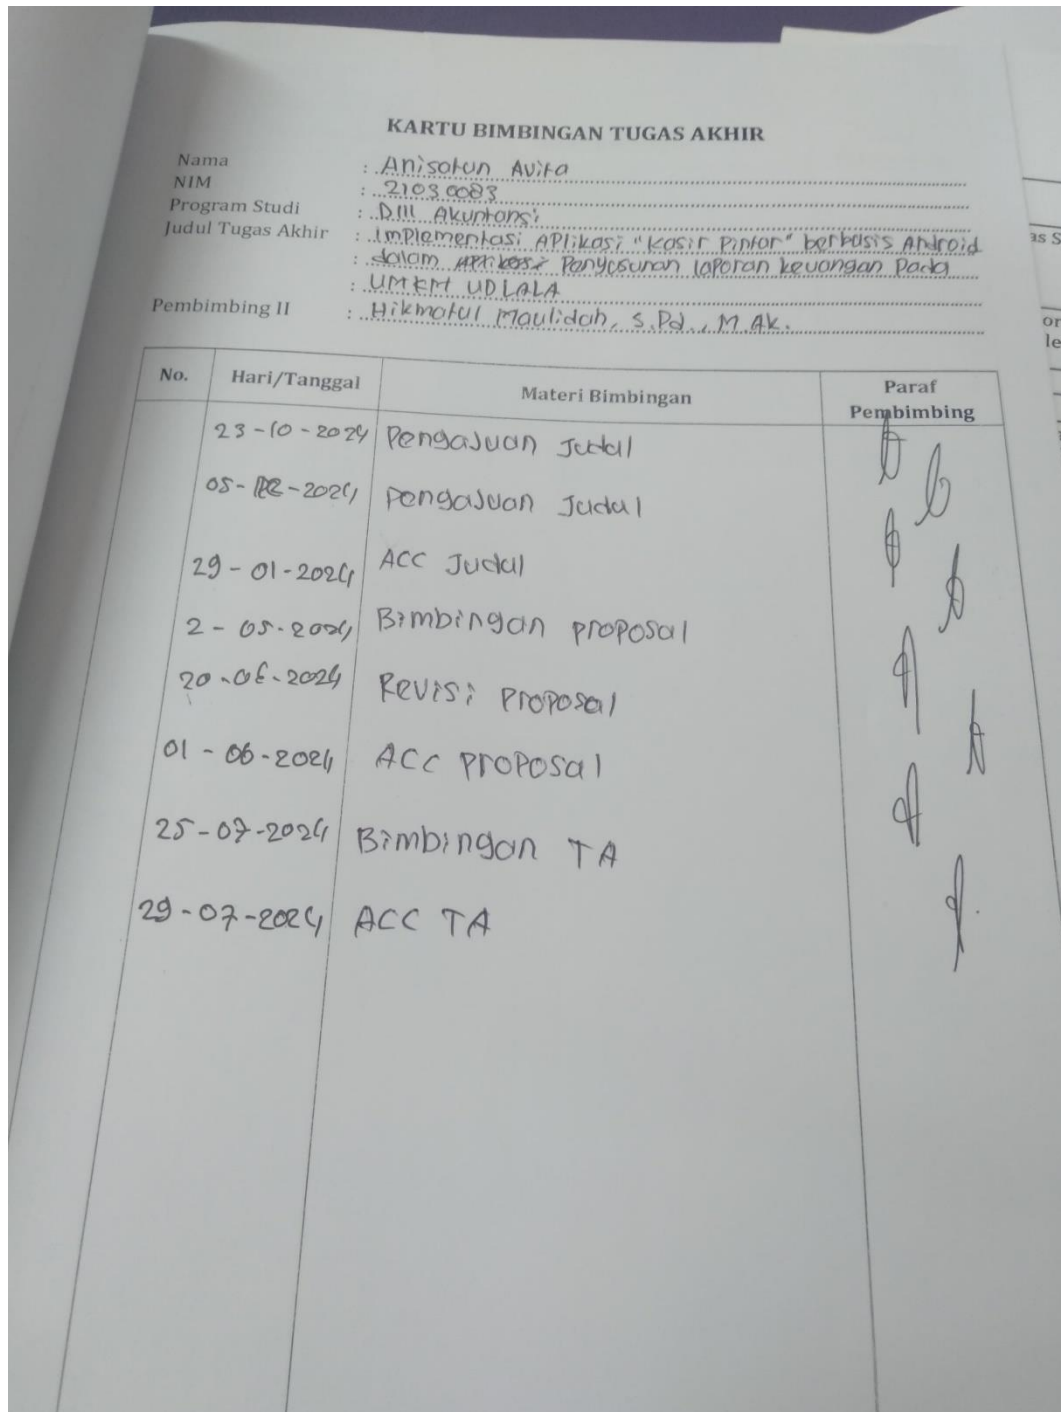 KARTU BIMBINGAN TUGAS AKHIR
Nama : Anisatun Avita
NIM : 21030083
Program Studi : DIII Akuntansi
Judul Tugas Akhir : Implementasi Aplikasi "Kasir Pintar" berbasis Android
: dalam Penyusunan laporan keuangan Pada
: UMKM UD LALA
Pembimbing II : Hikmatul Maulidah, S.Pd., M.Ak.
No. Hari/Tanggal Materi Bimbingan Paraf Pembimbing
23-10-2024 Pengajuan Judul
2024 Pengajuan Judul
29-01-2024 ACC Judul
2-05-2024 Bimbingan proposal
2024 Revisi Proposal
01-06-2024 ACC Proposal
25-07-2024 Bimbingan TA
29-07-2024 ACC TA